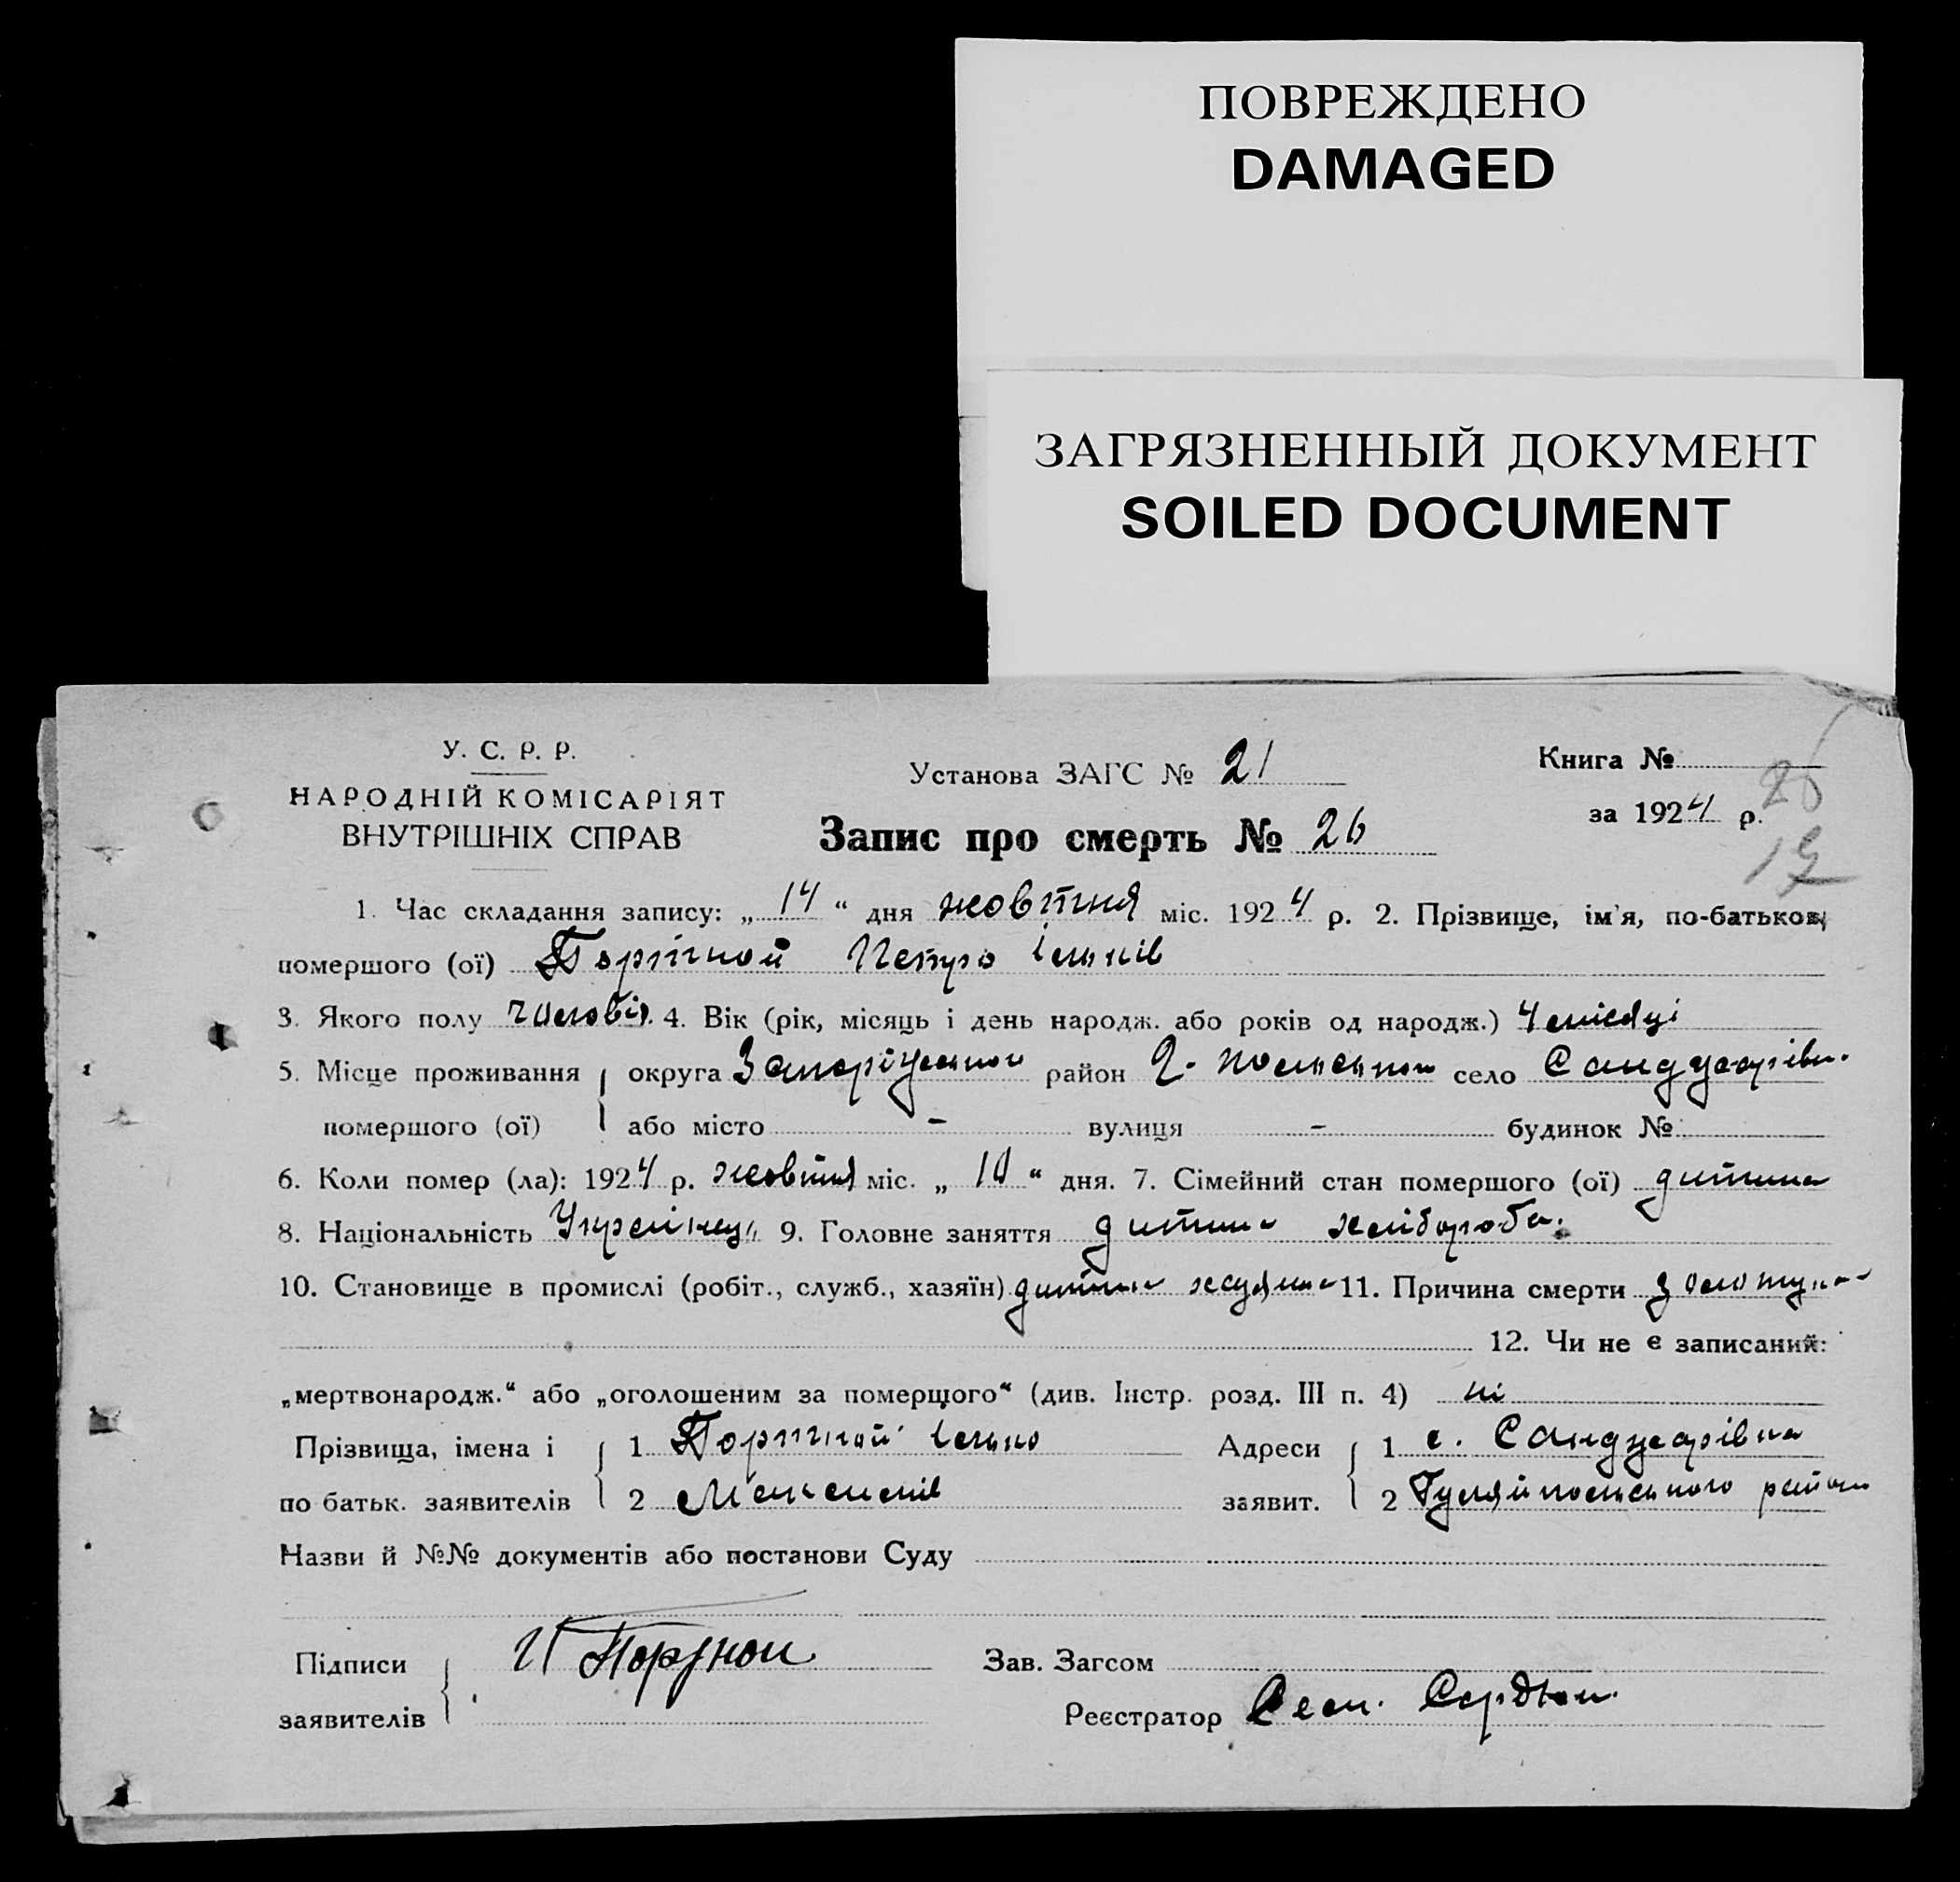 ПОВРЕЖДЕНО
DAMAGED
ЗАГРЯЗНЕННЫЙ ДОКУМЕНТ
SOILED DOCUMENT
У. С. Р. Р.
НАРОДНІЙ КОМІСАРІЯТ
ВНУТРІШНІХ СПРАВ
Установа ЗАГС № 21
Запис про смерть № 26
Книга №
за 1924 р.
26
19
1. Час складання запису: „ 14 “ дня жовтня міс. 1924 р. 2. Прізвище, ім'я, по-батькові
помершого (ої) Портной Петро Ільків
3. Якого полу чоловіч. 4. Вік (рік, місяць і день народж. або років од народж.) 4 місяці
5. Місце проживання округа Запоріжського район Г. Польського село Санджарівк.
помершого (ої) або місто - вулиця - будинок №
6. Коли помер (ла): 1924 р. жовтня міс. „ 10 “ дня. 7. Сімейний стан помершого (ої) дитина
8. Національність Українец 9. Головне заняття дитина хлібороба.
10. Становище в промислі (робіт., служб., хазяїн) дитина 11. Причина смерти золотуха
12. Чи не є записаний:
„мертвонародж.“ або „оголошеним за померщого“ (див. Інстр. розд. III п. 4) ні
Прізвища, імена і 1 Портной Ілько Адреси 1 с. Санджарівка
по батьк. заявителів 2 заявит. 2 Гуляйпольського район
Назви й №№ документів або постанови Суду
Підписи И Портной Зав. Загсом
заявителів Реєстратор Сердюк